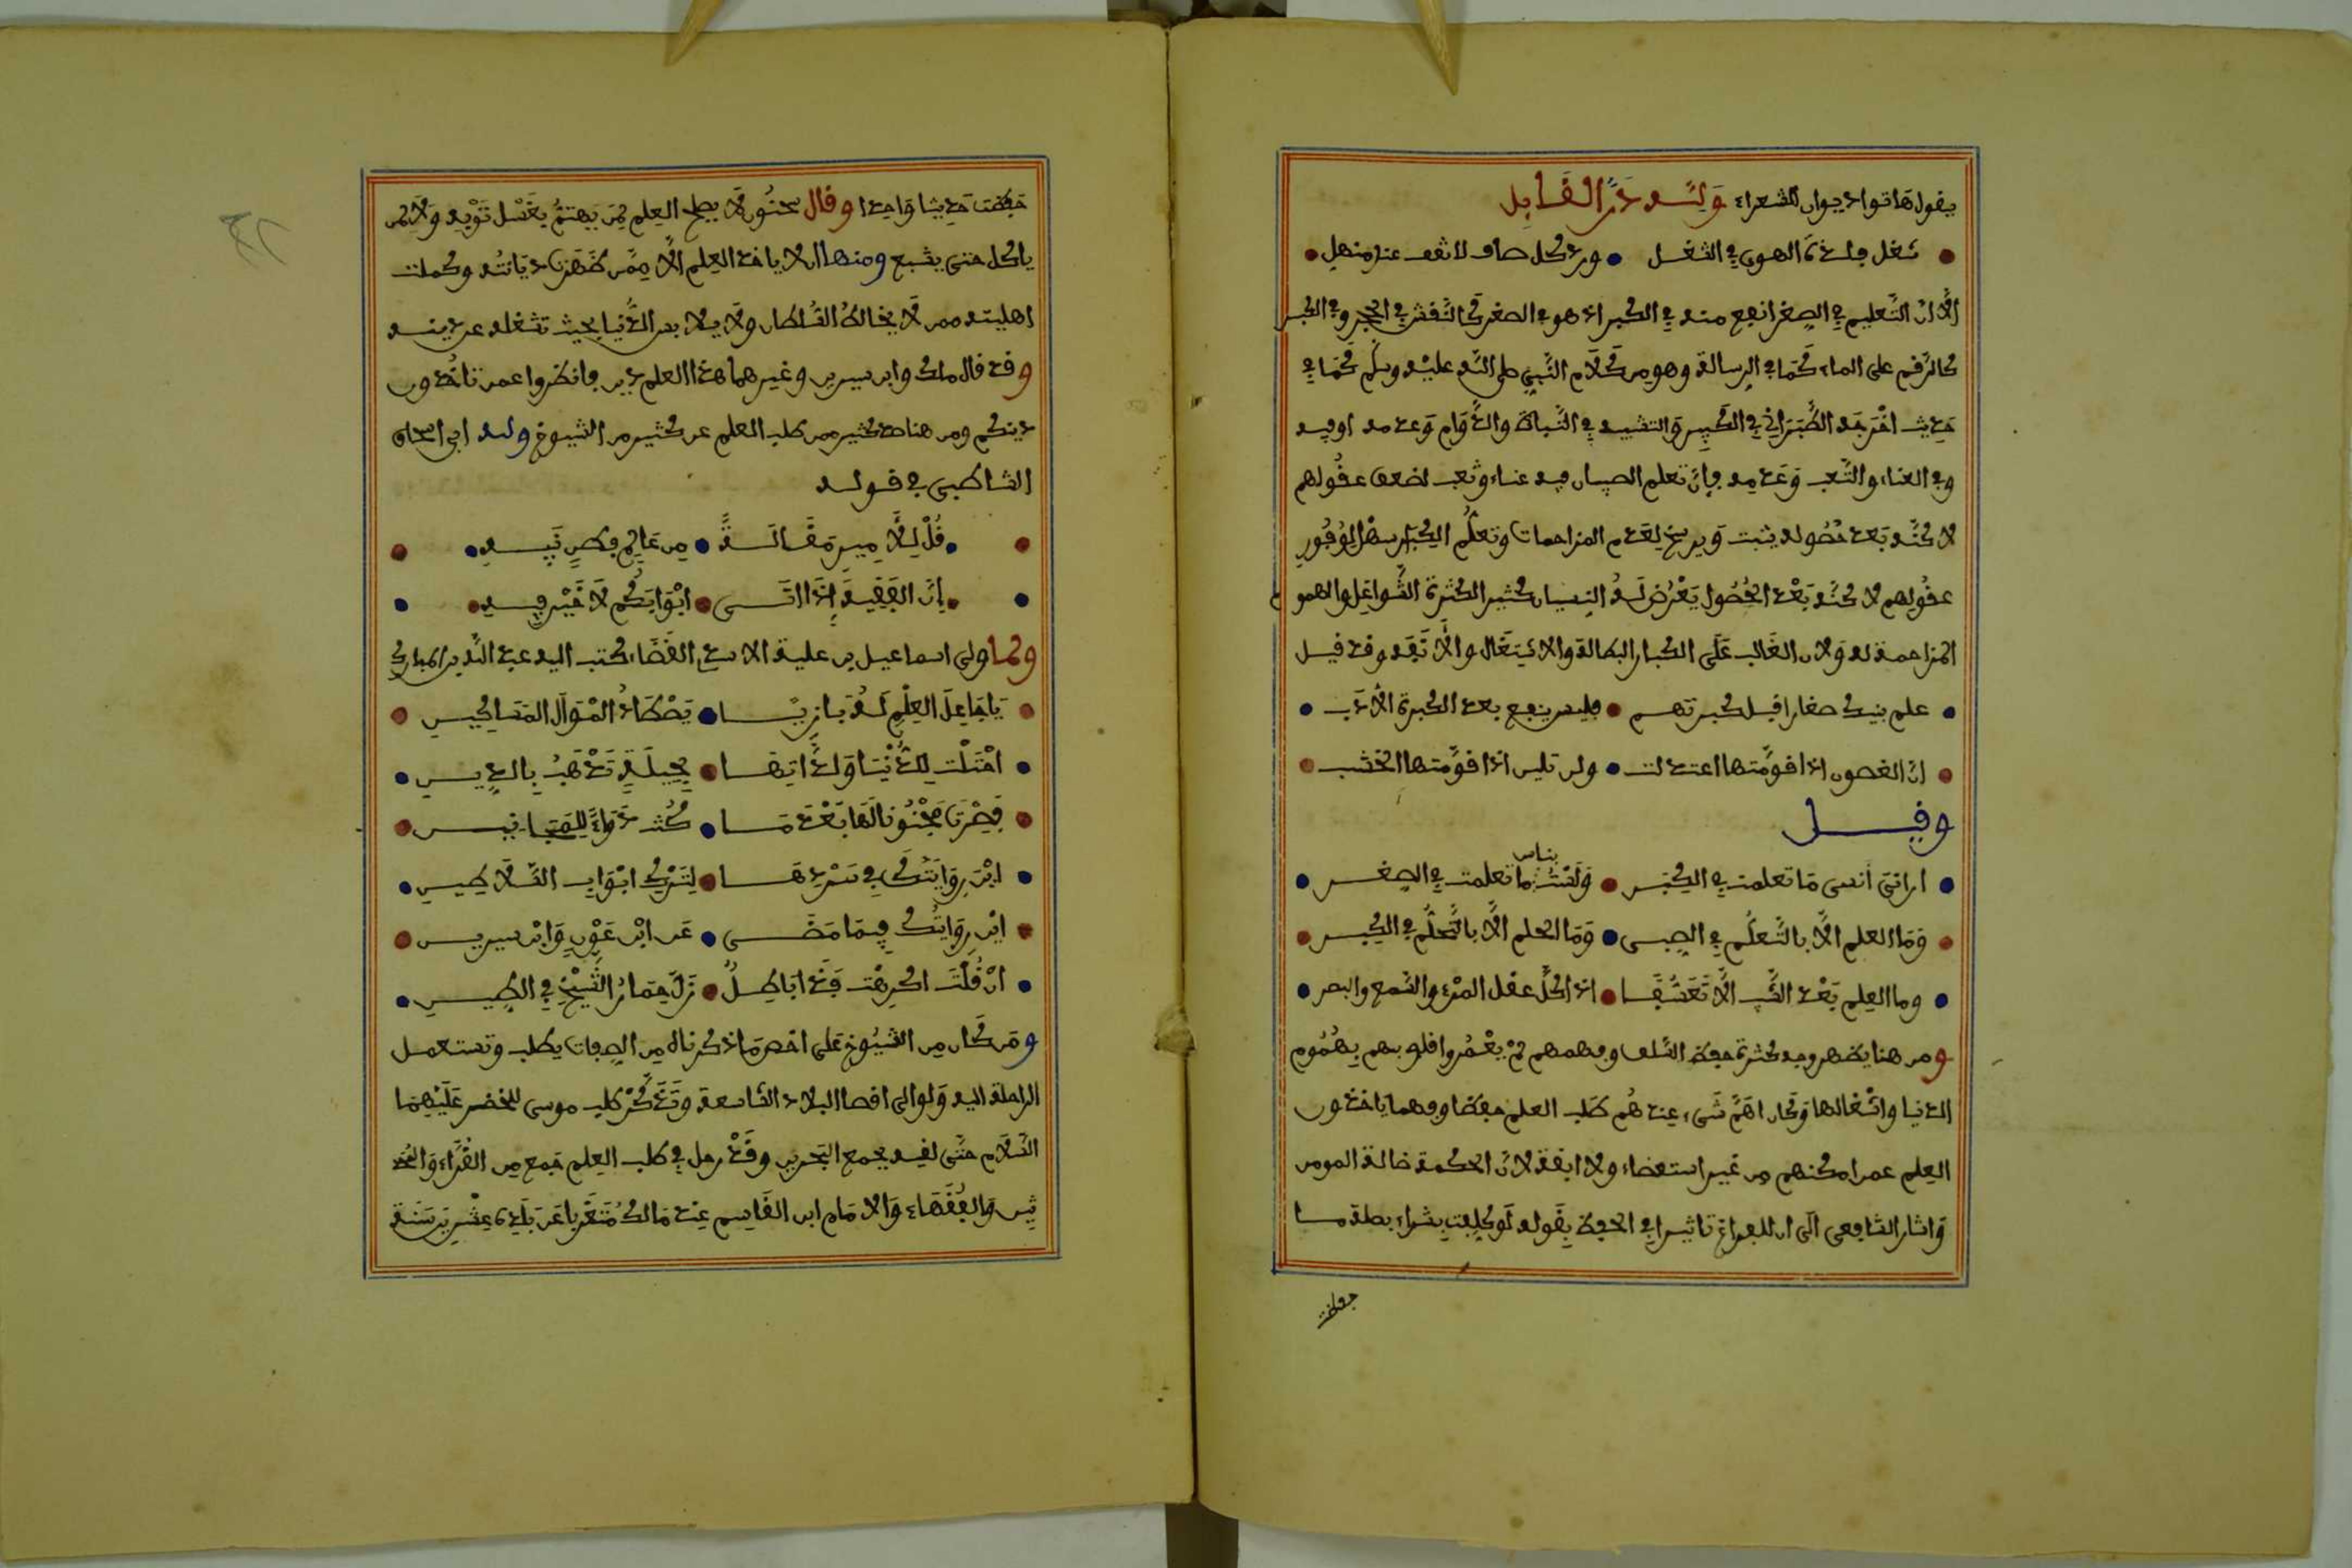 يقول هاتوا ديوان الشعراء ولله در القابل
شغل فلذة الهوى في الشغل ورد كل صاف لا تقف عند منهل
الا ان التعليم في الصغر انفع منه في الكبر اذ هو في الصغر كالنقش في الحجر وفي الكبر
كالرقم على الماء كما في الرسالة وهو من كلام النبي صلى الله عليه وسلم كما في
حديث اخرجه الطبراني في الكبير والتشبيه في الثبات والدوام وعدمه او فيه
وفي العناء والتعب وعدمه فإن تعلم الصبيان فيه عناء وتعب لضعف عقولهم
لاكنه بعد حصوله يثبت ويرسخ لعدم المزاحمات وتعلم الكبار سهل لوفور
عقولهم لاكنه بعد الحصول يعرض له النسيان كثيرا لكثرة الشواغل والهمو
المزاحمة له ولان الغالب على الكبار البطالة والاشتغال والانفة وقد قيل
علم بنيك صغارا قبل كبرتهم فليس ينفع بعد الكبرة الادب
ان الغصون اذا قومتها اعتدلت ولن تلين اذا قومتها الخشب
وقيل
اراني أنسى ما تعلمت في الكبر ولست بناس ما تعلمت في الصغر
وما العلم الا بالتعلم في الصبى وما الحلم الا بالتحلم في الكبر
وما العلم بعد الشيب الا تعسفا اذا كل عقل المرء والسمع والبصر
ومن هنا يظهر وجه كثرة حفظ السلف وفهمهم لم يعمروا قلوبهم بهموم
الدنيا واشغالها وكان اهم شيء عندهم طلب العلم حفظا وفهما ياخذون
العلم عمن امكنهم من غير استعضاء ولا انفة لان الحكمة ضالة المومن
واشار الشافعي الى ان للفراغ تاثيرا في الحفظ بقوله لو كلفت بشراء بصلة ما
حفظت
حفظت حديثا واحدا وقال سحنون لا يصلح العلم لمن يهتم بغسل ثوبه ولا لمن
ياكل حتى يشبع ومنها ان لا ياخذ العلم الا ممن ظهرت ديانته وكملت
اهليته ممن لا يخالط السلطان ولا يلابس الدنيا بحيث تشغله عن دينه
وقد قال ملك وابن سيرين وغيرهما هذا العلم دين فانظروا عمن تاخذون
دينكم ومن هنا صد كثير ممن طلب العلم عن كثير من الشيوخ ولله ابي اسحاق
الشاطبي في قوله
قل للامير مقالة من عالم فطن نبيه
إن الفقيه إذا اتى ابوابكم لا خير فيه
ولما ولى اسماعيل بن علية الاسدي القضاء كتب اليه عبد الله بن المبارك
يا جاعل العلم له بازيا يصطاد اموال المساكين
احتلت للدنيا ولذاتها بحيلة تذهب بالدين
فصرت مجنونا لها بعد ما كنت دواء للمجانين
اين رواياتك في سردها لترك ابواب السلاطين
اين رواياتك فيما مضى عن ابن عون وابن سيرين
ان قلت اكرهت فذا باطل زل حمار الشيخ في الطين
ومن كان من الشيوخ على اخص ما ذكرناه من الصفات يطلب وتستعمل
الراحلة اليه ولو الى اقصا البلاد الشاسعة وتذكر طلب موسى للخضر عليهما
السلام حتى لقيه بمجمع البحرين وقد رحل في طلب العلم جمع من القراء والمحد
ثين والفقهاء والامام ابن القاسم عند مالك متغربا عن بلده عشرين سنة